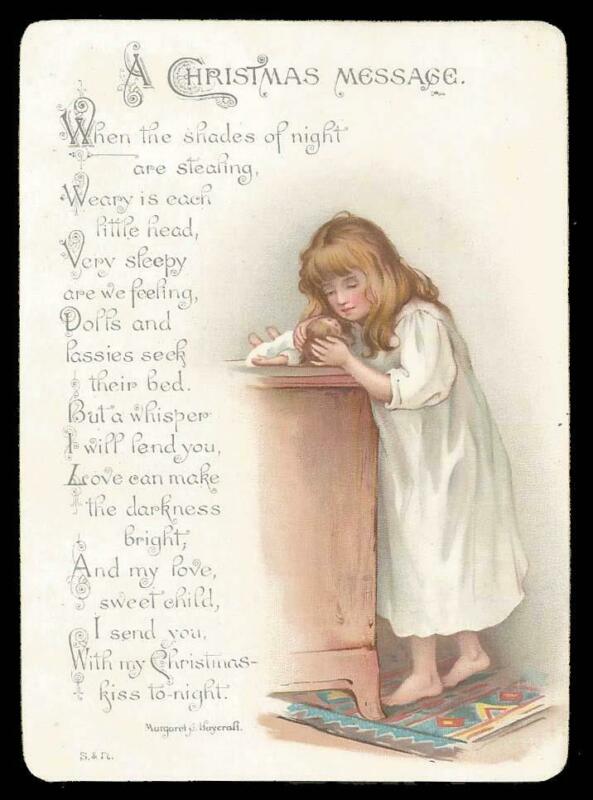 A CHRISTMAS MESSAGE.
When the shades of night
are stealing,
Weary is each
little head,
Very sleepy
are we feeling,
Dolls and
lassies seek
their bed.
But a whisper
I will lend you,
Love can make
the darkness
bright;
And my love,
sweet child,
I send you,
With my Christmas-
kiss to-night.
Margaret S. Haycraft.
S. & N.